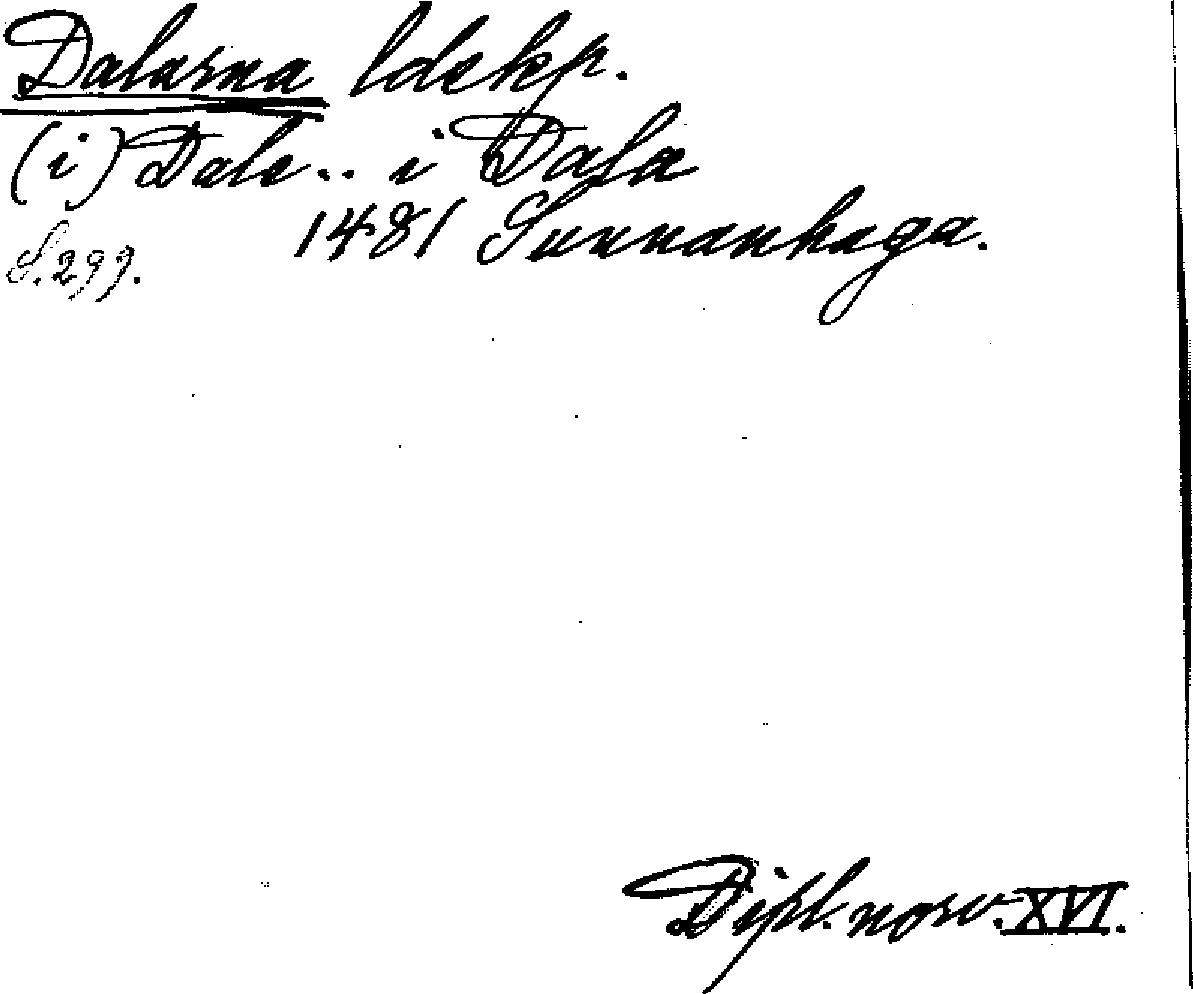 Dalarna ldskp.
(i) Dale.. i Dala
1481 Sunnanhaga.
S. 299.
Dipl. norv. XVI.